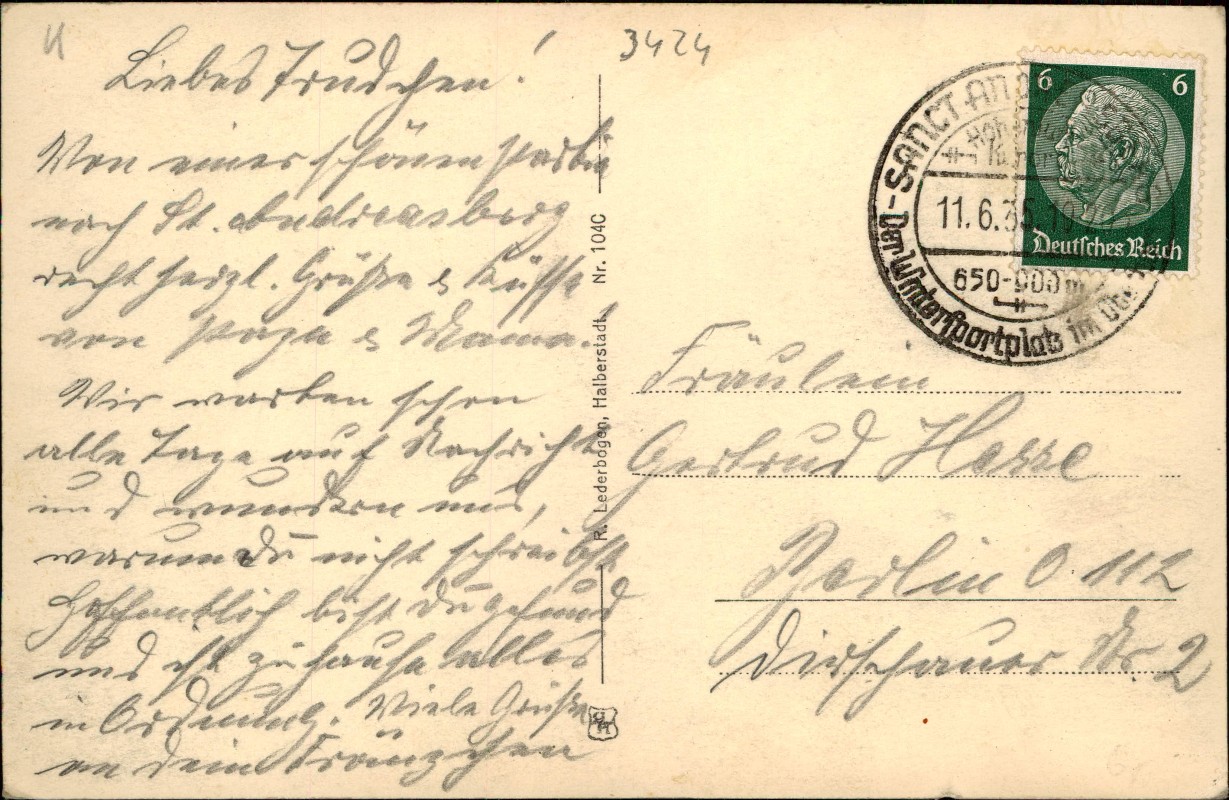 3424
Liebes Trudchen!
Von einer schönen Partie
nach St. Andreasberg
recht herzl. Grüße & Küsse
von Papa & Mama.
Wir warten schon
alle Tage auf Nachricht
und wundern uns,
warum Du nicht schreibst
Hoffentlich bist Du gesund
und ist zuhause alles
in Ordnung. Viele Grüße
an dein Fränzchen
R. Lederbogen, Halberstadt Nr. 104C
SANCT AND
11.6.35.10
650-900 m
Der Wintersportplatz im
6 6
Deutsches Reich
Fräulein
Gertrud Hesse
Berlin O 112
Dirschauer Str 2